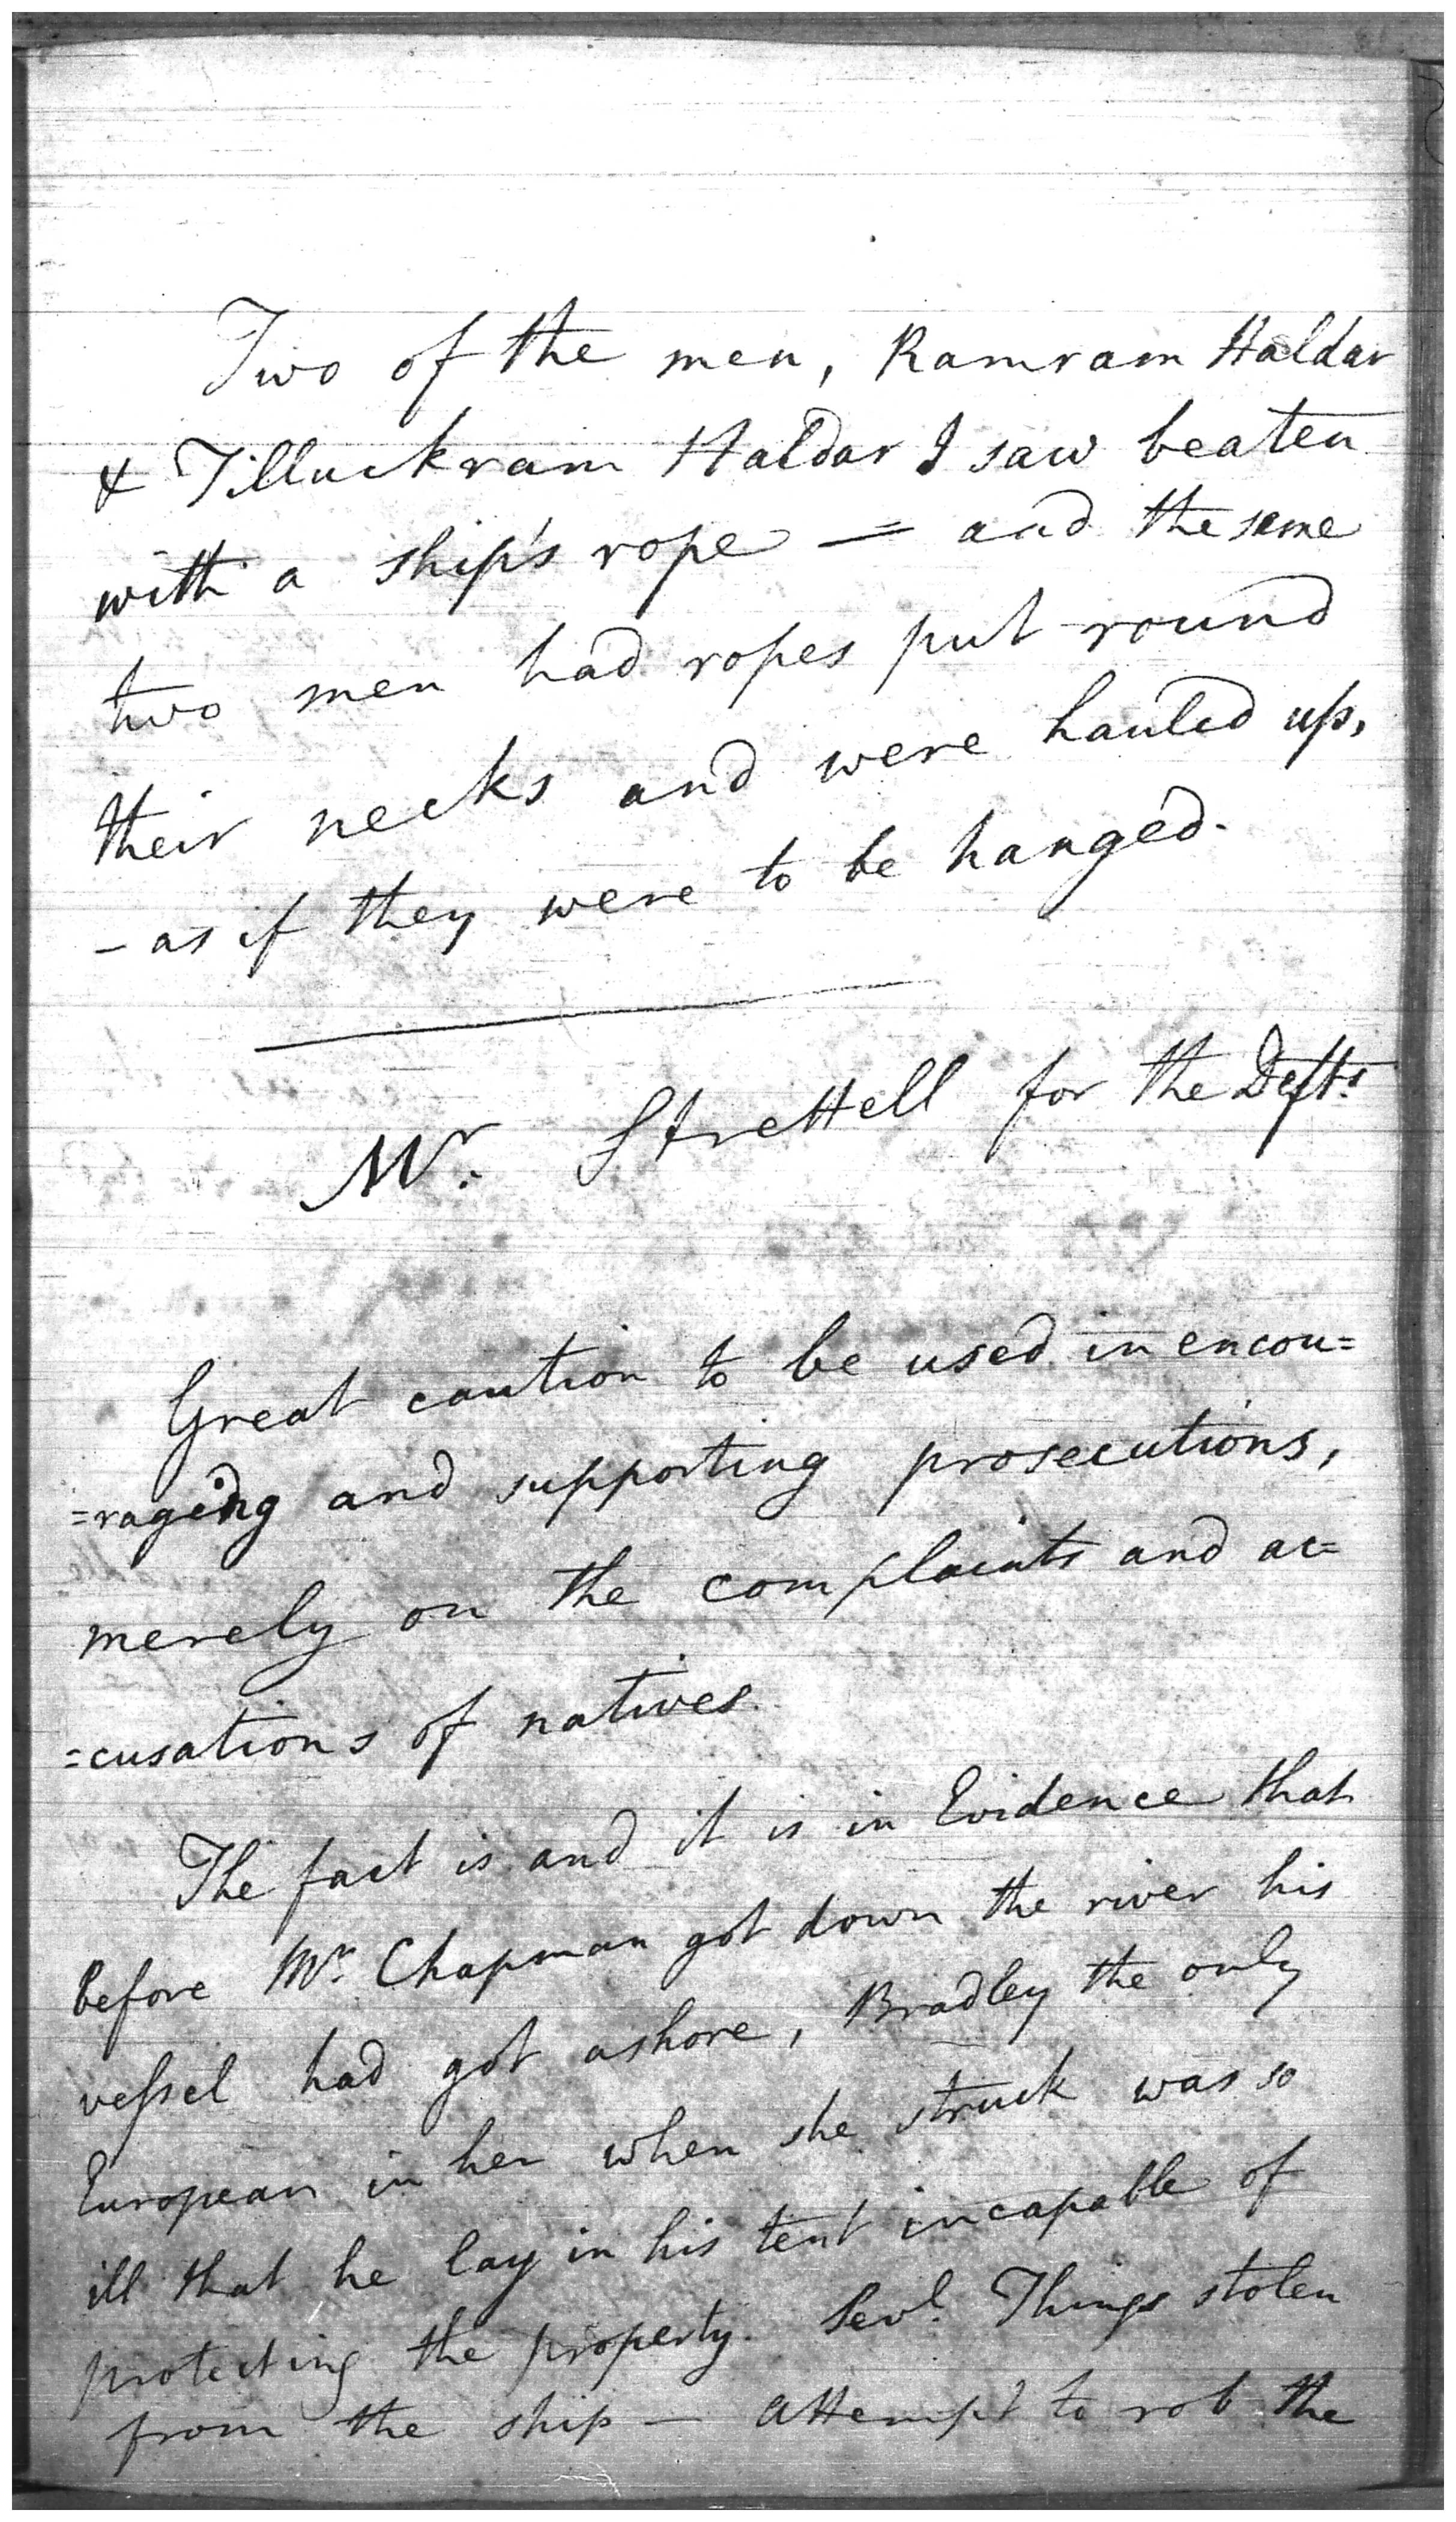 Two of the men, Ramram Haldar
& Tilluckram Haldar I saw beaten
with a ship's rope — and the same
two men had ropes put round
their necks and were hauled up,
- as if they were to be hanged.
Mr. Strettell for the Defts.
Great caution to be used in encou=
=raging and supporting prosecutions,
merely on the complaints and ac=
=cusations of natives.
The fact is and it is in Evidence that
before Mr. Chapman got down the river his
vessel had got ashore, Bradley the only
European in her when she struck was so
ill that he lay in his tent incapable of
protecting the property. Sevl. Things stolen
from the ship — attempt to rob the